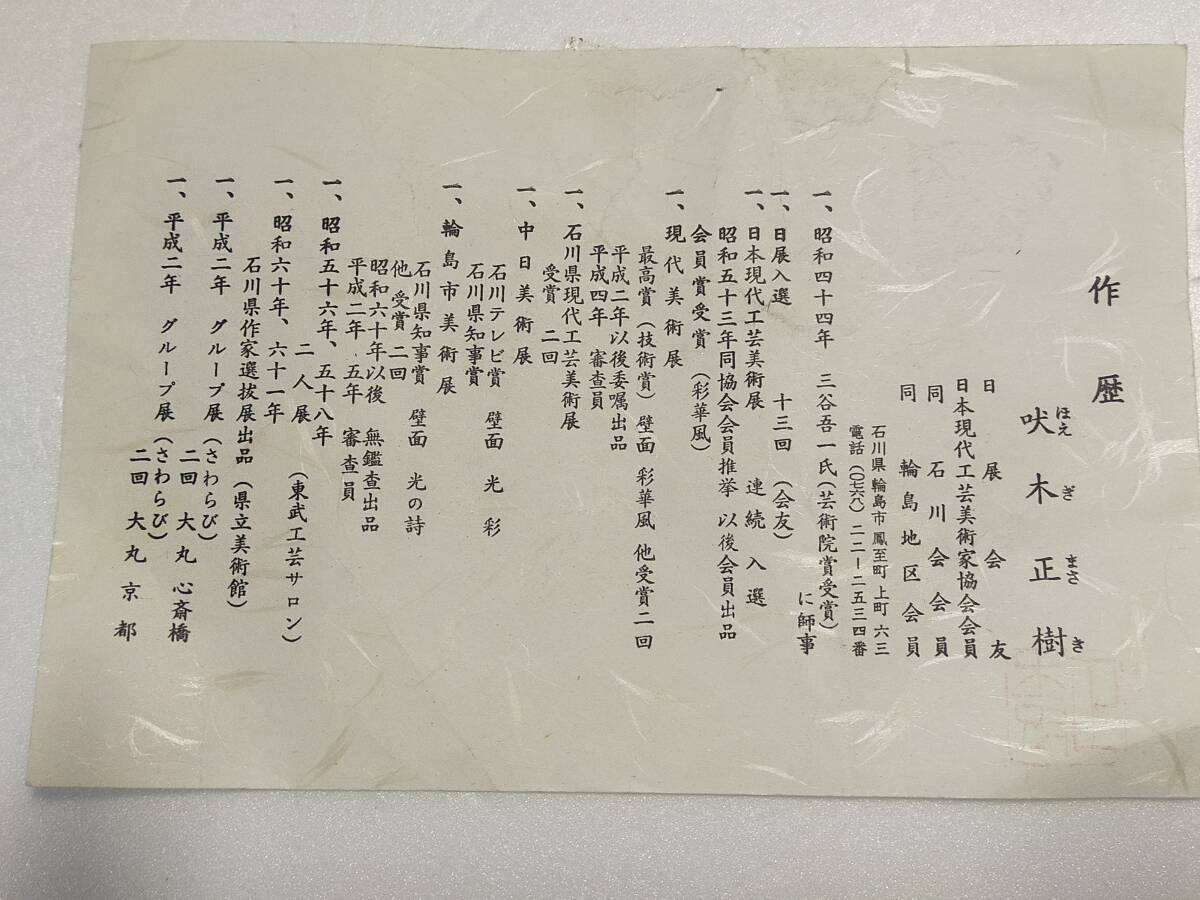 作歴
吠木正樹
ほえぎまさき
日展会友
日本現代工芸美術家協会会員
同石川会会員
同輪島地区会員
石川県輪島市鳳至町上町六三
電話(〇七六八)二二ー二五三四番
一、昭和四十四年 三谷吾一氏(芸術院賞受賞)
に師事
一、日展入選 十三回(会友)
一、日本現代工芸美術展 連続入選
昭和五十三年同協会会員推挙 以後会員出品
会員賞受賞(彩華風)
一、現代美術展
最高賞(技術賞)壁面 彩華風 他受賞二回
平成二年以後委嘱出品
平成四年 審査員
一、石川県現代工芸美術展
受賞 二回
一、中日美術展
石川テレビ賞 壁面 光彩
石川県知事賞
一、輪島市美術展
石川県知事賞 壁面 光の詩
他受賞二回
昭和六十年以後 無鑑査出品
平成二年、五年 審査員
一、昭和五十六年、五十八年
二人展 (東武工芸サロン)
一、昭和六十年、六十一年
石川県作家選抜展出品(県立美術館)
一、平成二年 グループ展(さわらび)
二回 大丸 心斎橋
一、平成二年 グループ展(さわらび)
二回 大丸 京都